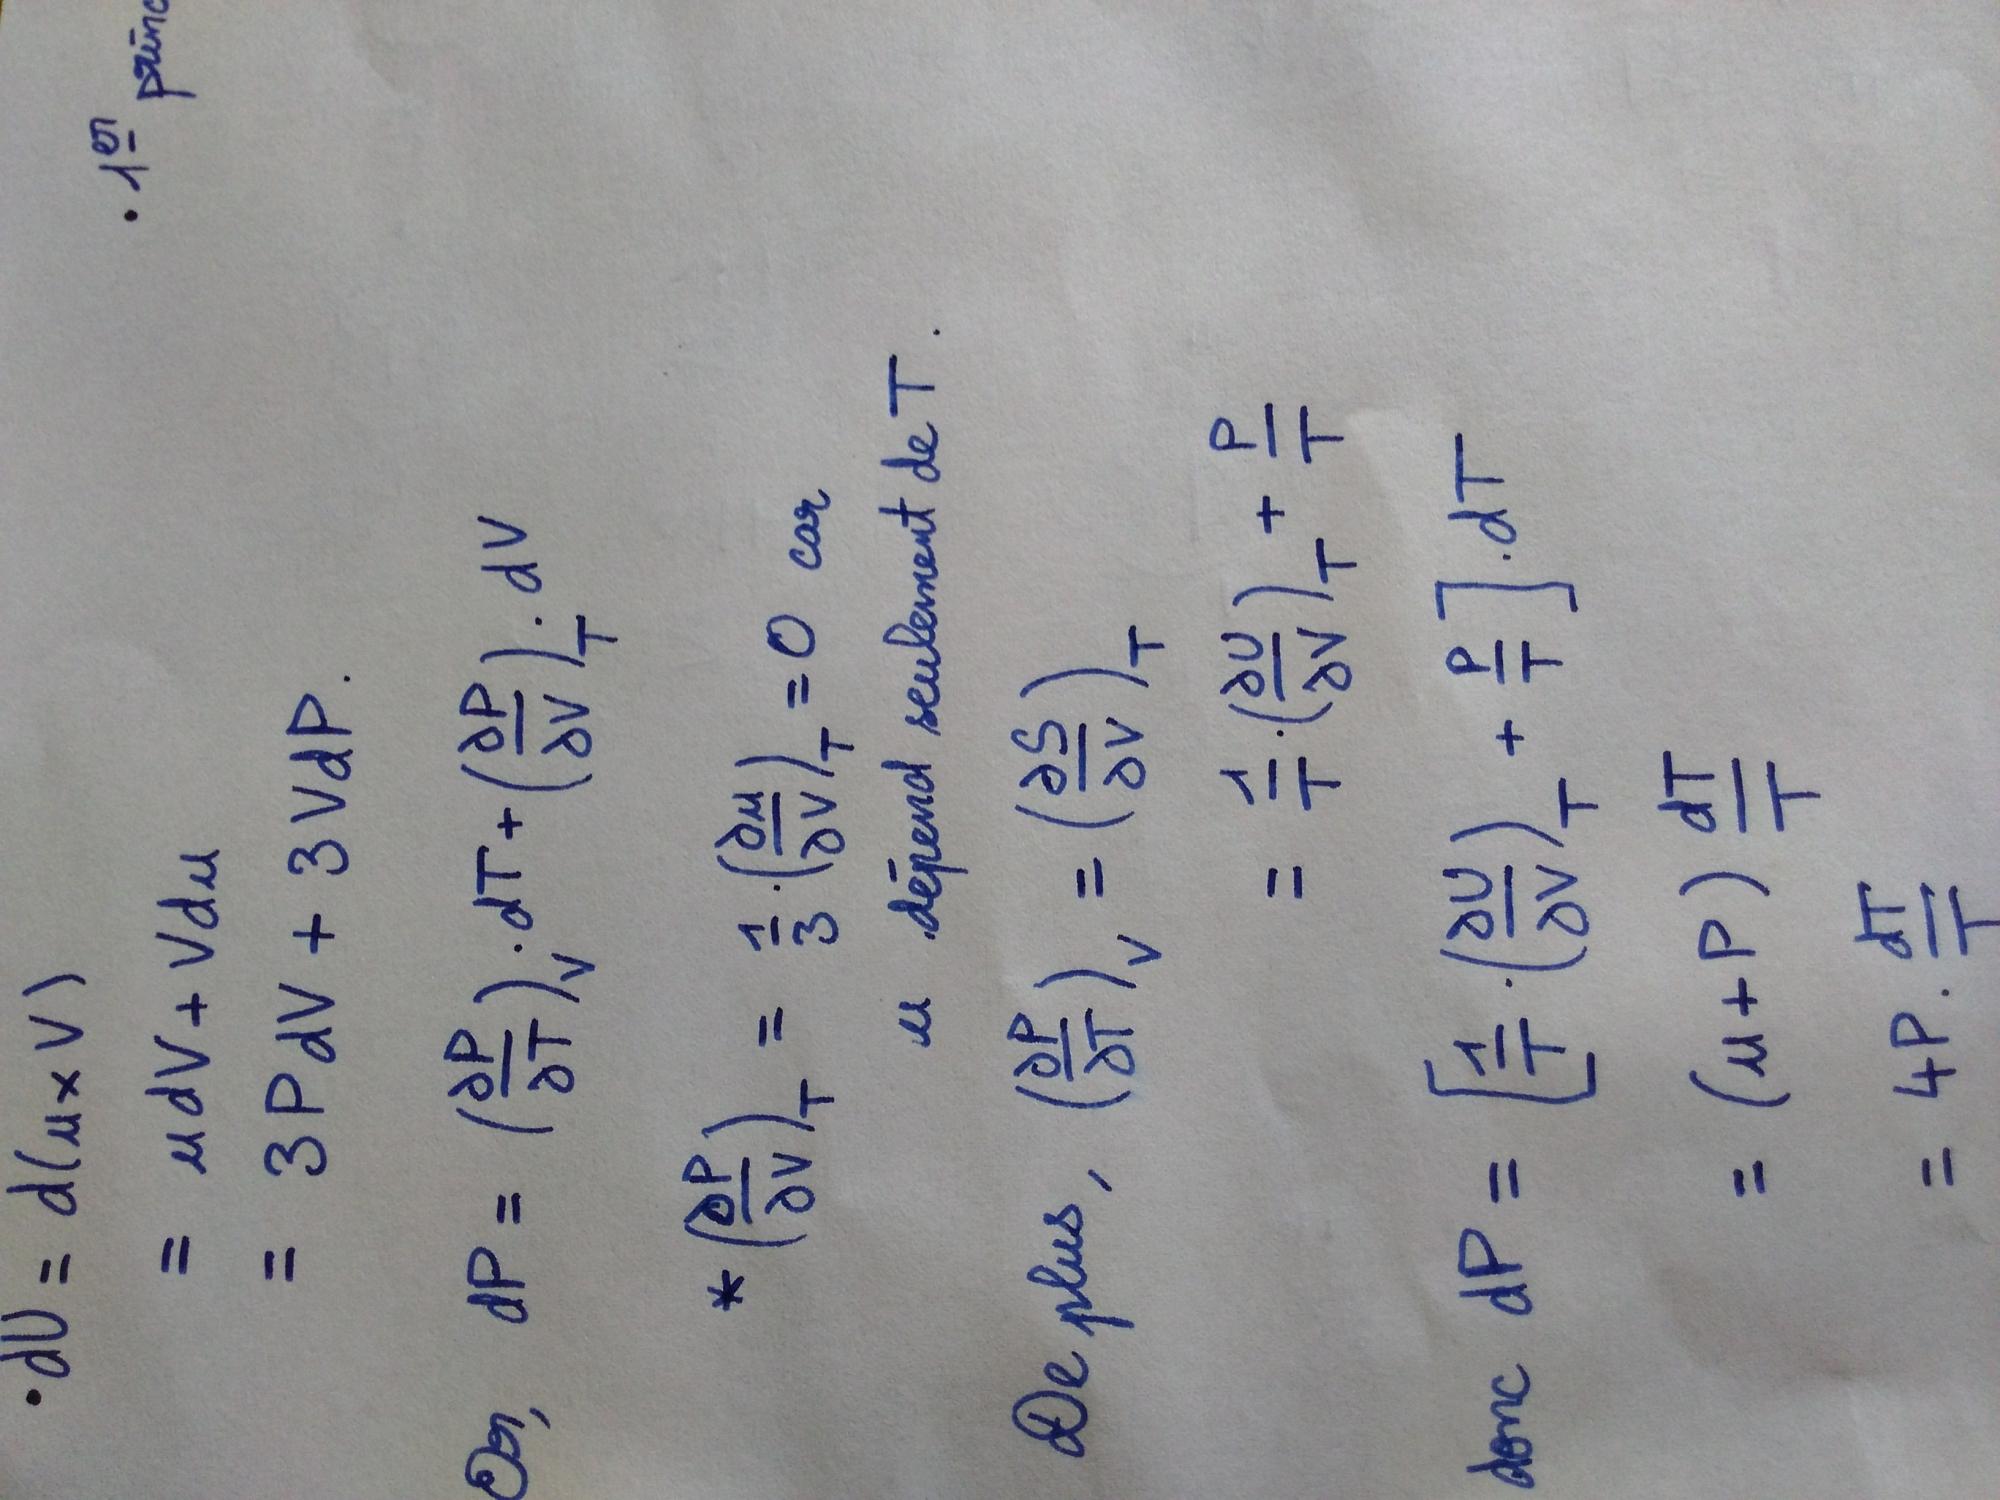 • dU = d(u×V)
= udV + Vdu
= 3PdV + 3VdP.
Or, dP = (∂P/∂T)_V . dT + (∂P/∂V)_T . dV
* (∂P/∂V)_T = 1/3 . (∂u/∂V)_T = 0 car
u dépend seulement de T.
De plus, (∂P/∂T)_V = (∂S/∂V)_T
= 1/T . (∂U/∂V)_T + P/T
donc dP = [1/T . (∂U/∂V)_T + P/T] . dT
= (u+P) dT/T
= 4P . dT/T
• 1er